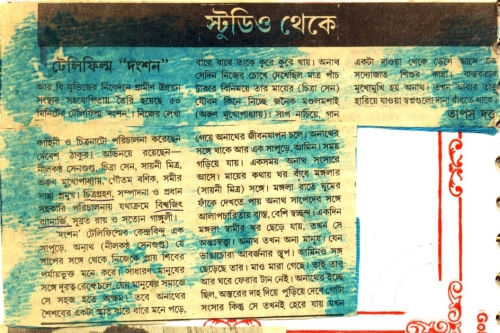 স্টুডিও থেকে
টেলিফিল্ম "দংশন"
আর বি মুভিজের নিবেদনে গ্রামীণ উন্নয়ন
সংস্থার সহযোগিতায় তৈরি হয়েছে ৫০
মিনিটের টেলিফিল্ম 'দংশন'। নিজের লেখা
কাহিনী ও চিত্রনাট্যে পরিচালনা করেছেন
দেবেশ ঠাকুর। অভিনয়ে রয়েছেন—
নীলকণ্ঠ সেনগুপ্ত, চিত্রা সেন, সায়নী মিত্র,
অরুণ মুখোপাধ্যায়, গৌতম বণিক, সমীর
সাহা প্রমুখ। চিত্রগ্রহণ, সম্পাদনা ও প্রধান
সহকারি পরিচালনায় যথাক্রমে বিশ্বজিৎ
ব্যানার্জি, সুব্রত রায় ও সত্যেন গাঙ্গুলী।
'দংশন' টেলিফিল্মের কেন্দ্রবিন্দু এক
সাপুড়ে, অনাথ (নীলকণ্ঠ সেনগুপ্ত) যে
সাপের সঙ্গে থেকে, নিজেকে প্রায় শিবের
পর্যায়ভুক্ত মনে করে। সাধারণ মানুষের
সঙ্গে দূরত্ব রেখে চলে, যেন মানুষের সমাজে
সে সহজ হতে অক্ষম। তবে অনাথের
শৈশবের একটা স্মৃতি বারে বারে মনে পড়ে,
বারে বারে তাকে কুরে কুরে খায়। অনাথ
সেদিন নিজের চোখে দেখেছিল মাত্র পাঁচ
টাকার বিনিময়ে তার মায়ের (চিত্রা সেন)
যৌবন কিনে নিচ্ছে জনৈক মণ্ডলমশাই
(অরুণ মুখোপাধ্যায়)। সাপ নাচিয়ে, গান
গেয়ে অনাথের জীবনযাপন চলে। অনাথের
সঙ্গে থাকে আর এক সাপুড়ে, আমিন। সময়
গড়িয়ে যায়। একসময় অনাথ সংসারে
আসে। মায়ের কথায় ঘর বাঁধে মঙ্গলার
(সায়নী মিত্র) সঙ্গে। মঙ্গলা রাতে ঘুমের
ফাঁকে দেখতে পায় অনাথ সাপেদের সঙ্গে
আলাপচারিতায় ব্যস্ত, বেশি স্বচ্ছন্দ। একদিন
মঙ্গলা স্বামীর ঘর ছেড়ে যায়, তখন সে
অন্তঃসত্ত্বা। অনাথ তখন অন্য মানুষ। যেন
ভাঙাচোরা আবর্জনার স্তূপ। আমিনও সঙ্গ
ছেড়েছে তার। মাও মারা গেছে। তাই তার
আর ঘরে ফেরার টান নেই। অনাথের ইচ্ছে
ছিল, অন্তরের দাহ দিয়ে পুড়িয়ে দেবে গোটা
সংসার কিন্তু সে তখনই হেরে যায় যখন
একটা দাওয়া থেকে ভেসে আসে এক
সদ্যোজাত শিশুর কান্না। বাস্তবতার
মুখোমুখি হয় অনাথ। তখন আবার তার
হারিয়ে যাওয়া স্বপ্নগুলো দানা বাঁধতে থাকে।
তাপস দত্ত